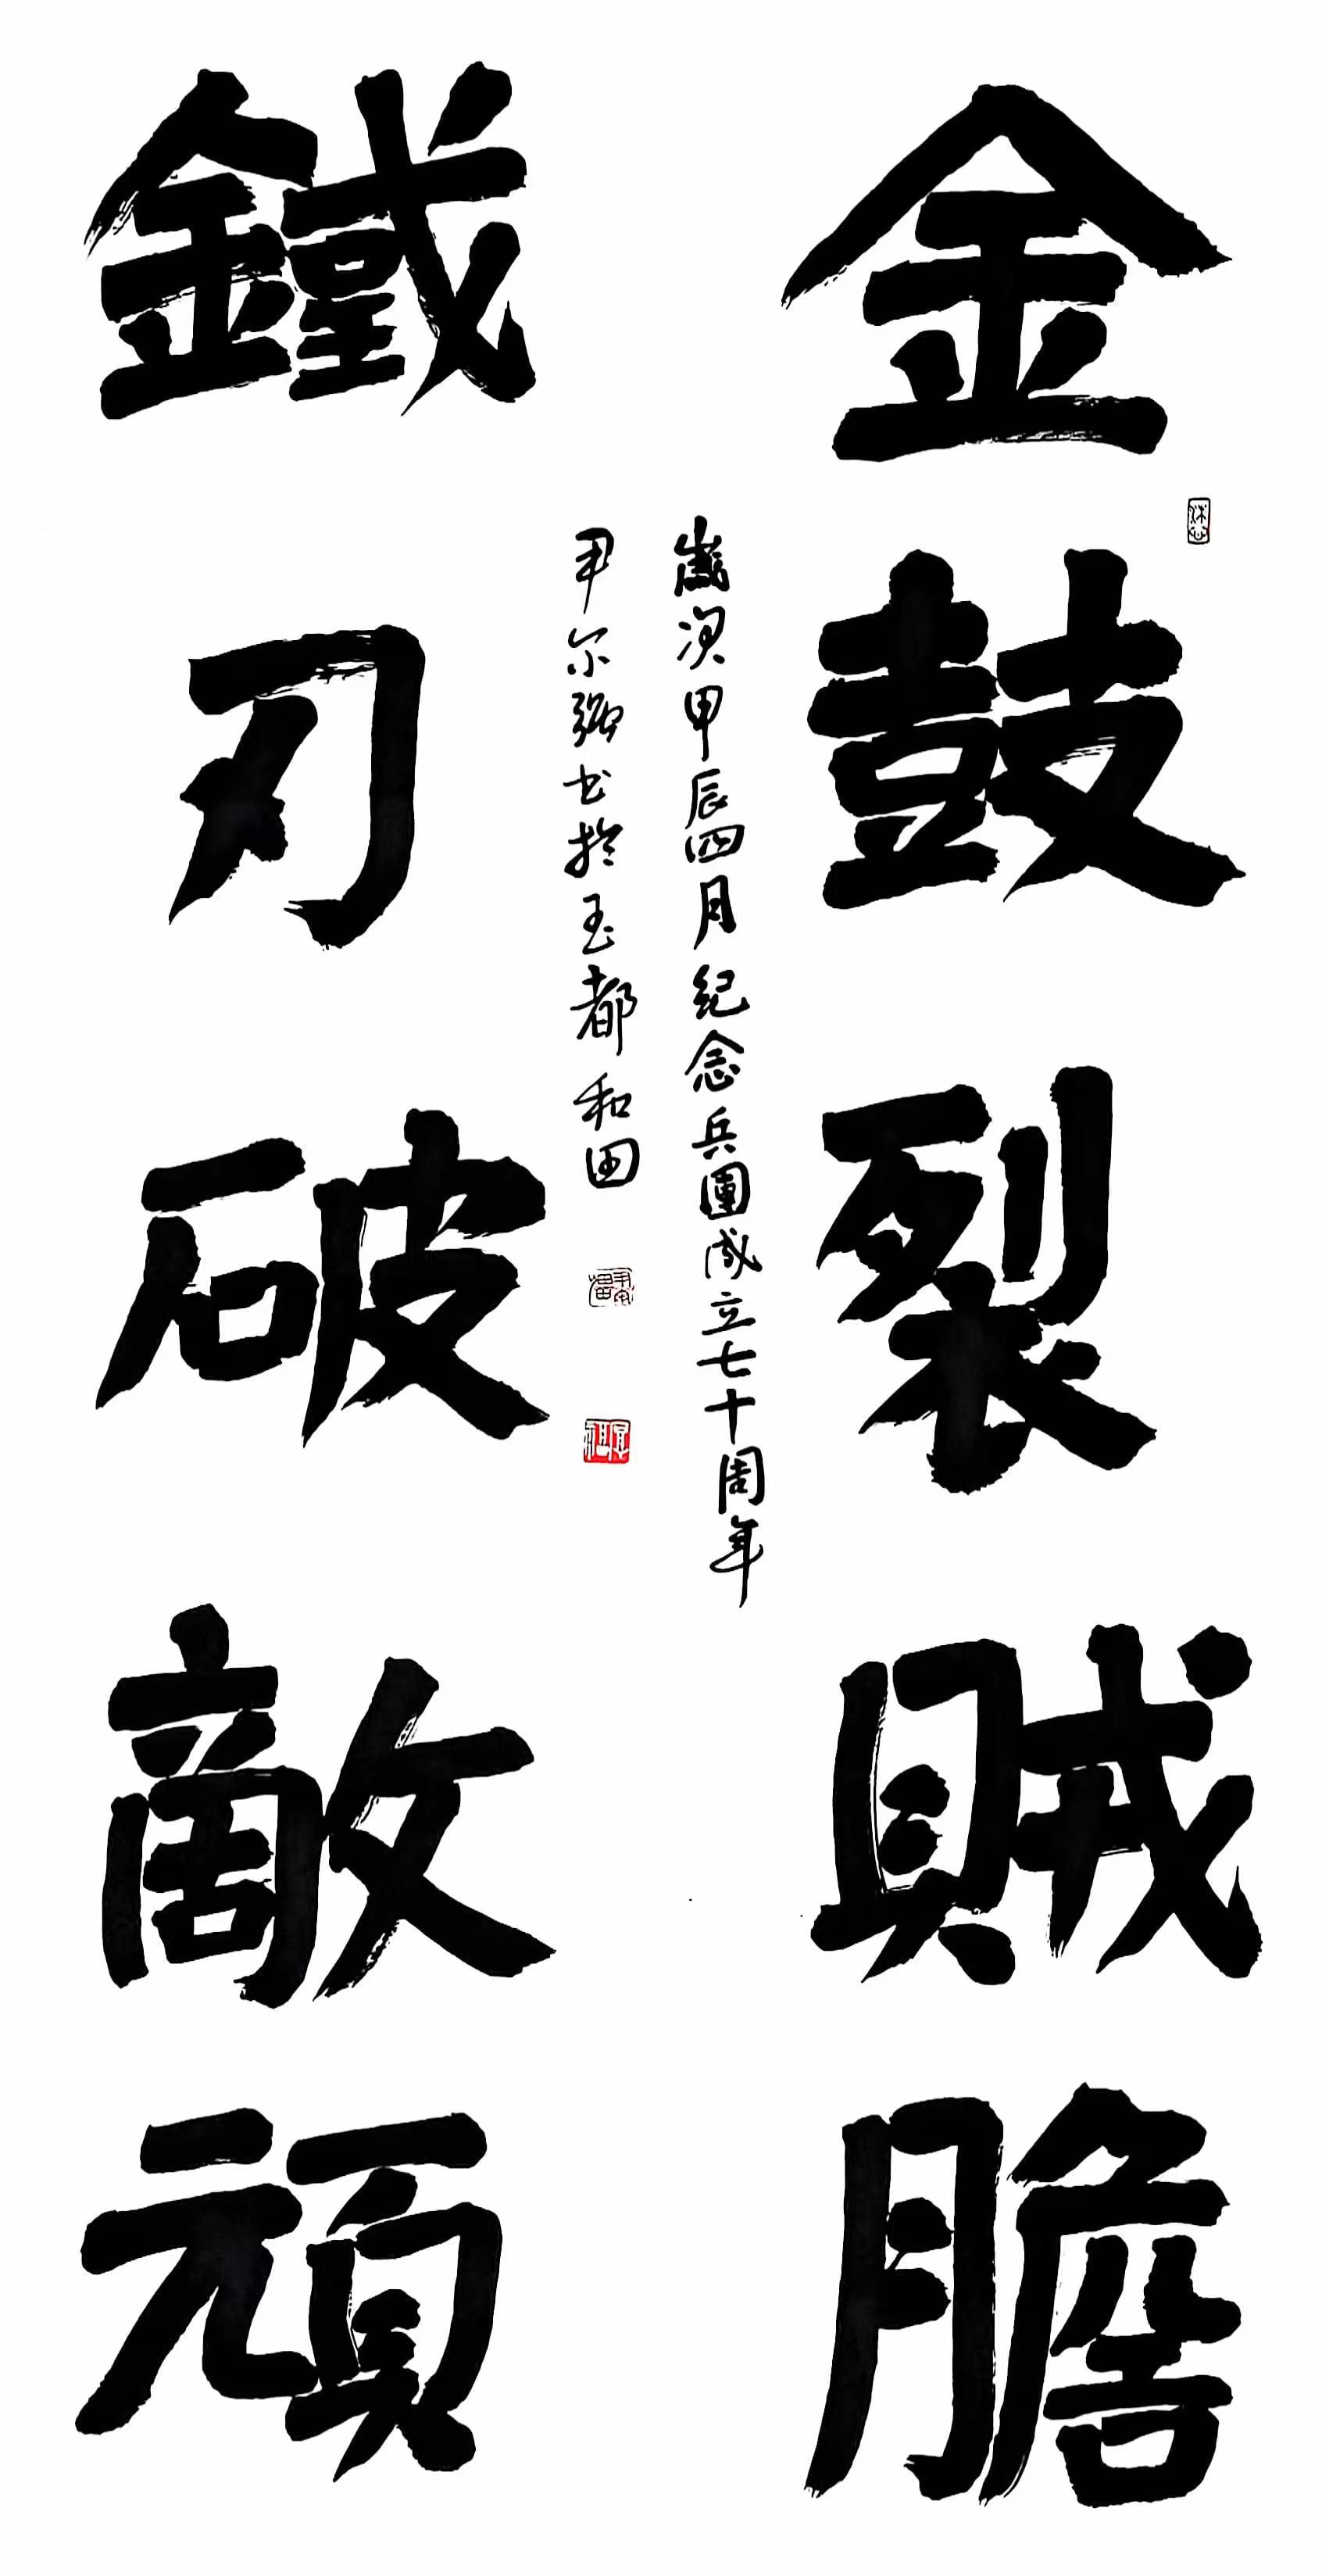 金鼓裂賊膽
歲次甲辰四月紀念兵團成立七十周年
尹尔強书於玉都和田
鐵刃破敵頑